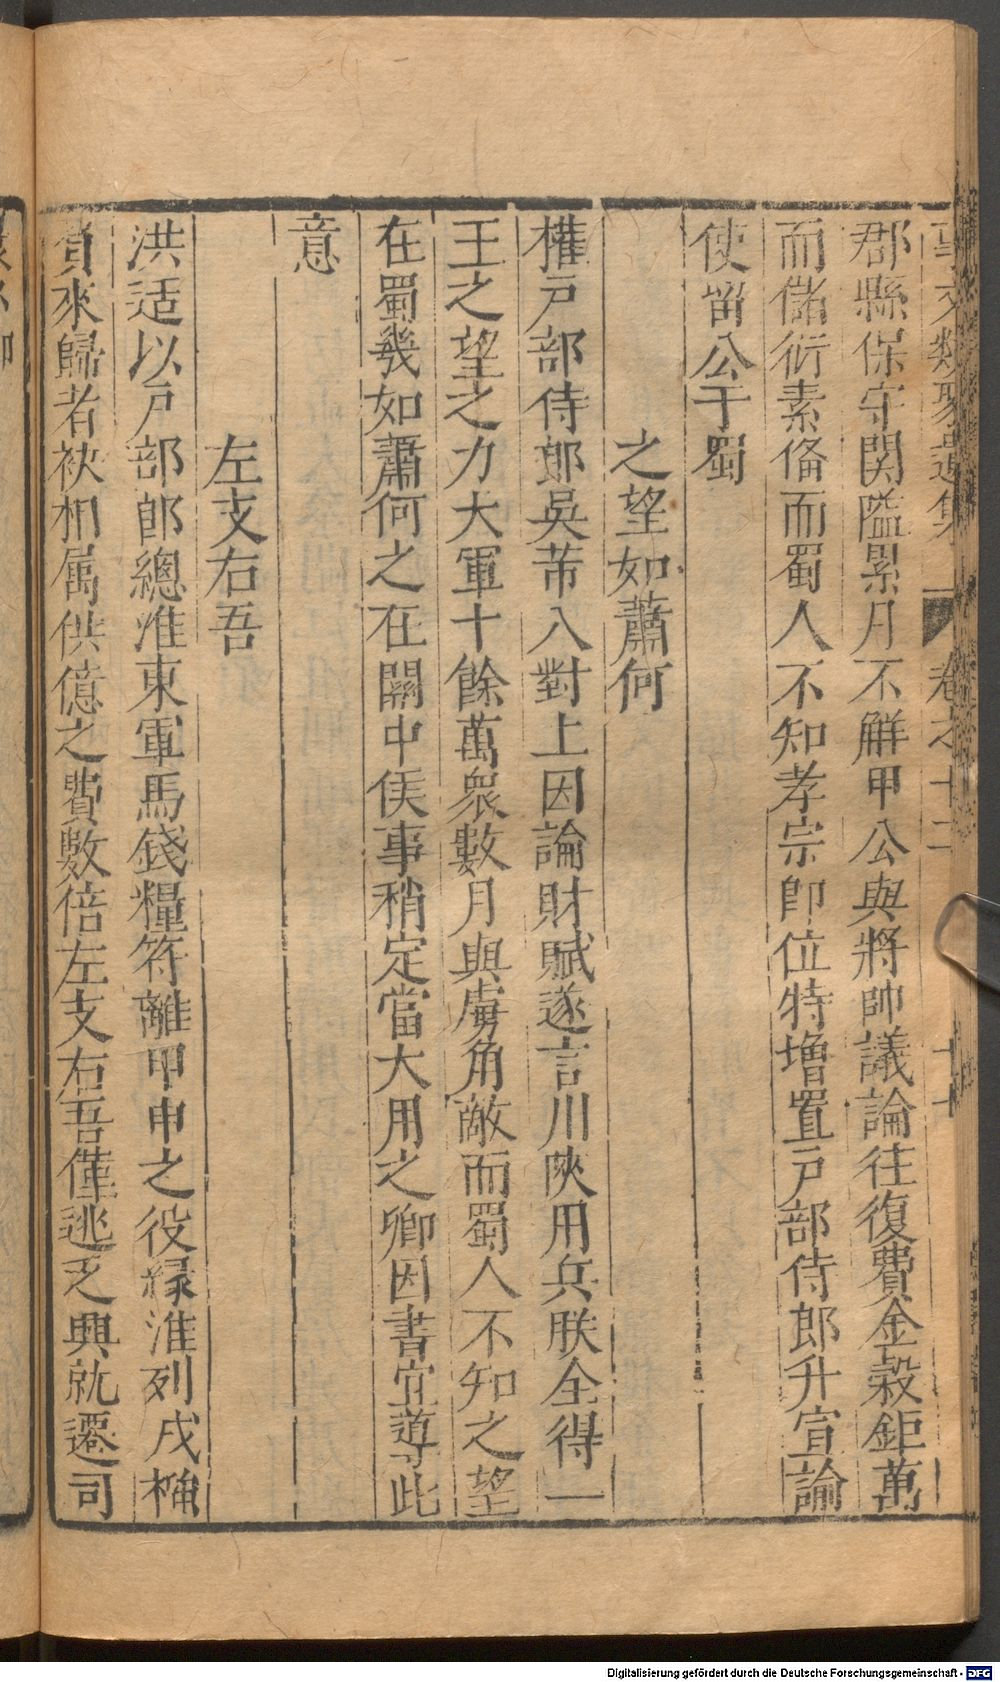 事文類聚遺集 卷之十二 十七
郡縣保守関隘累月不解甲公與將帥議論往復費金穀鉅萬
而儲衍素俻而蜀人不知孝宗卽位特增置戸部侍郎升宣論
使畱公于蜀
之望如蕭何
權戸部侍郎吳芾入對上因論財賦遂言川陝用兵朕全得一
王之望之力大軍十餘萬衆數月與虜角敵而蜀人不知之望
在蜀幾如蕭何之在關中俟事稍定當大用之卿因書宜導此
意
左支右吾
洪适以戸部郎總淮東軍馬錢糧符離甲申之役縁淮列戍
來歸者袂相属供億之費數倍左支右吾僅逃乏興就遷司
Digitalisierung gefördert durch die Deutsche Forschungsgemeinschaft - DFG